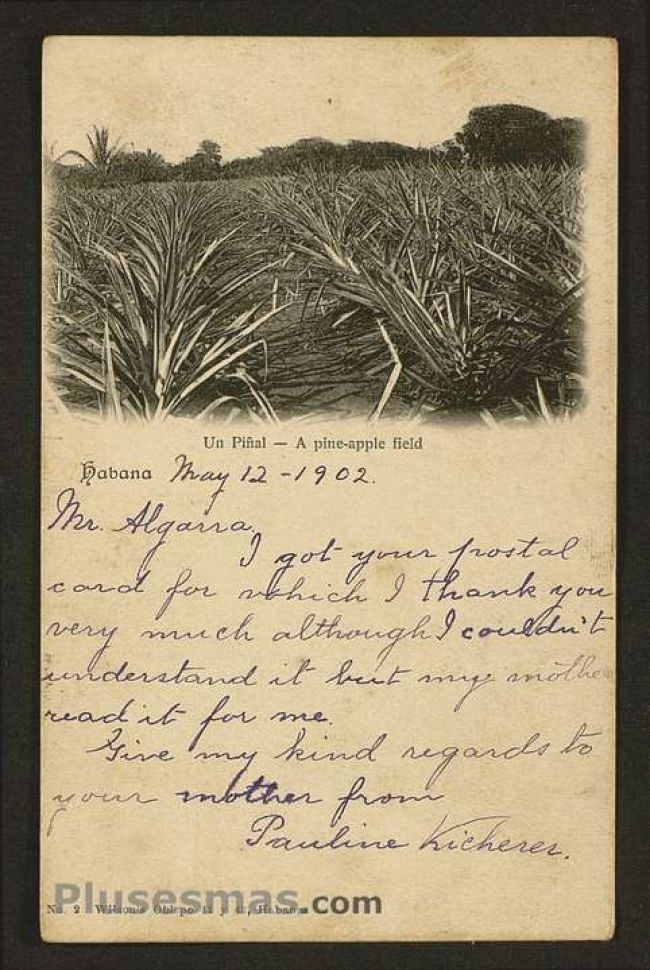 Un Piñal — A pine-apple field
Habana May 12 - 1902.
Mr. Algarra,
I got your postal
card for which I thank you
very much although I couldn't
understand it but my mother
read it for me.
Give my kind regards to
your mother from
Pauline Kicherer.
Plusesmas.com
No. 2 Wilson's Obispo 41 y 43, Habana